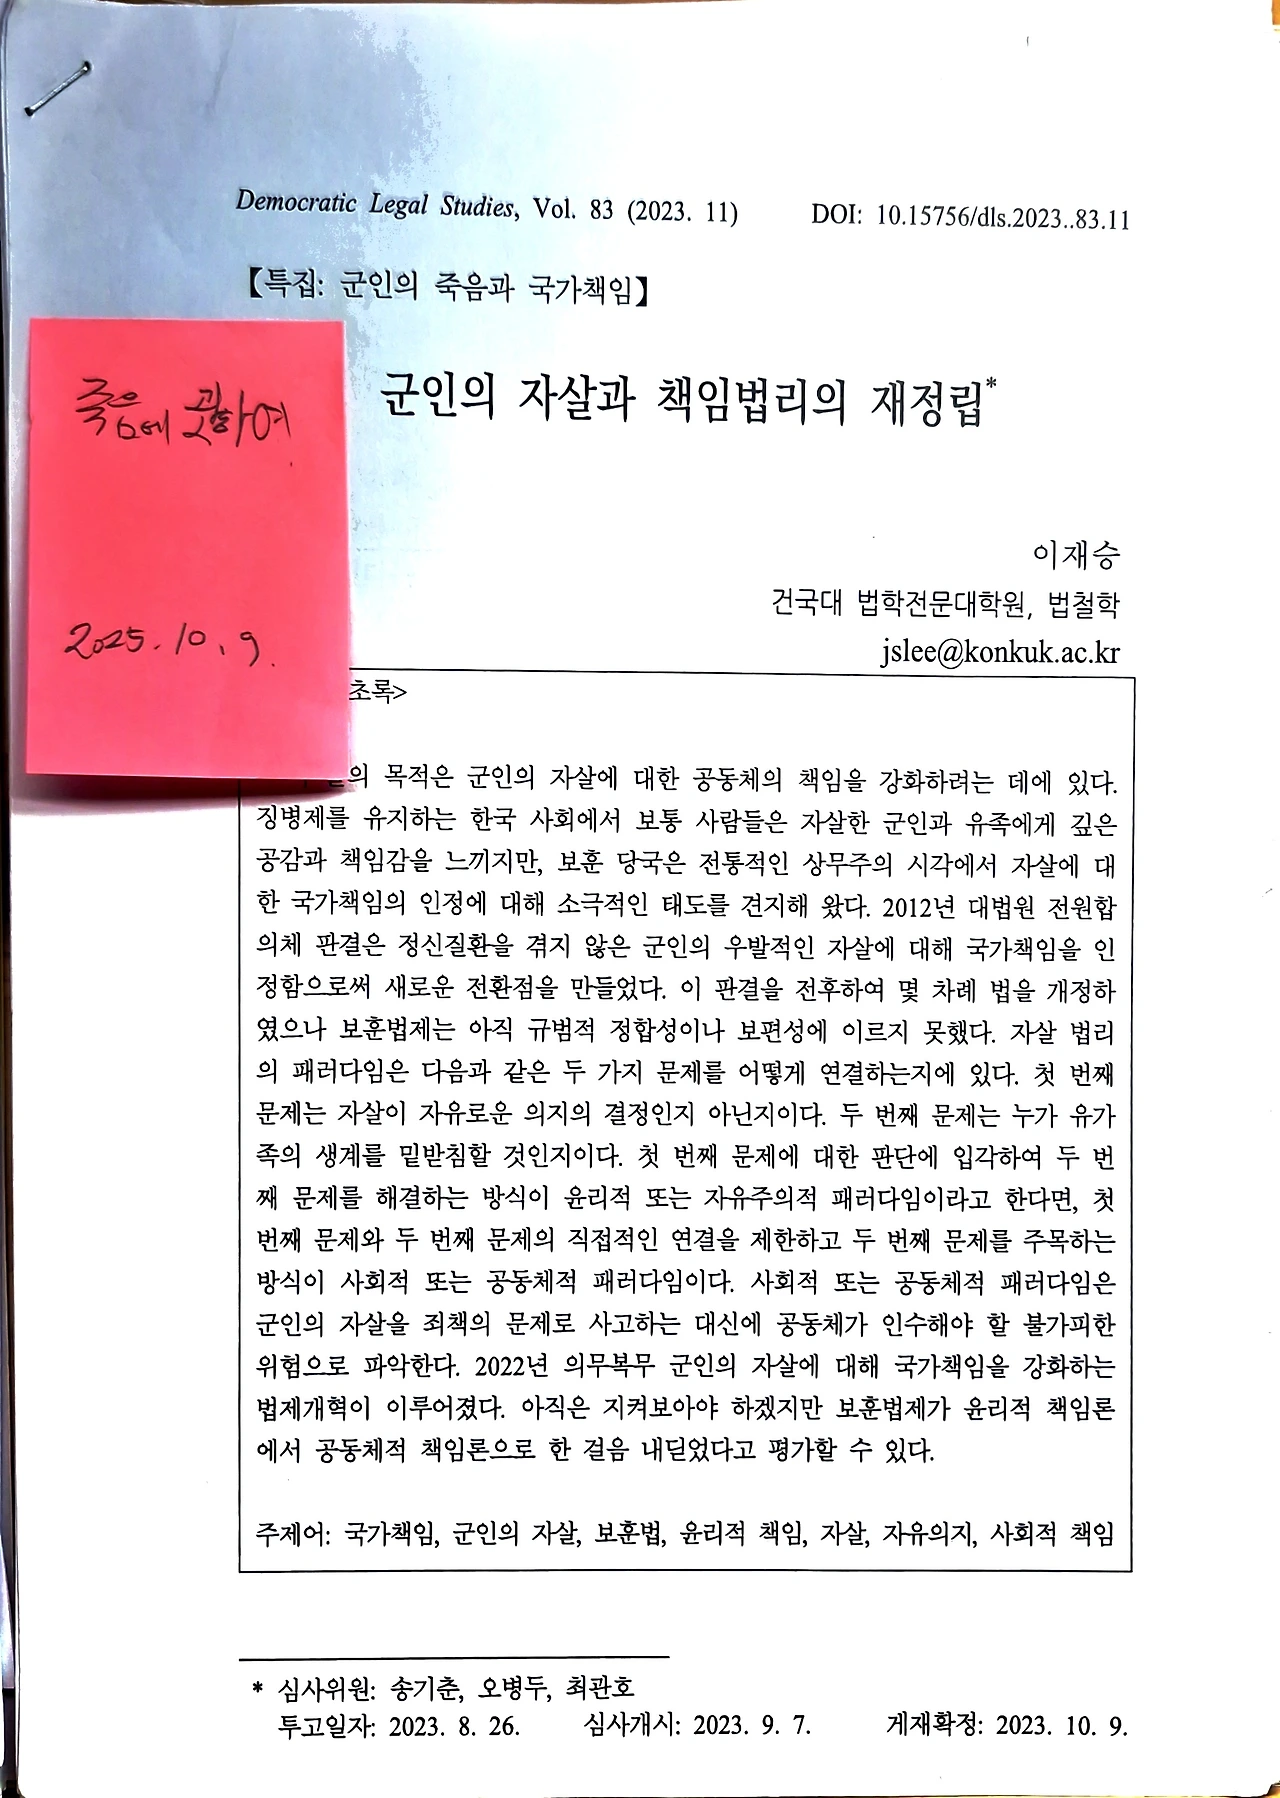 Democratic Legal Studies, Vol. 83 (2023. 11) DOI: 10.15756/dls.2023..83.11
【특집: 군인의 죽음과 국가책임】
군인의 자살과 책임법리의 재정립*
죽음에 관하여
2025. 10. 9.
이재승
건국대 법학전문대학원, 법철학
jslee@konkuk.ac.kr
초록>
의 목적은 군인의 자살에 대한 공동체의 책임을 강화하려는 데에 있다.
징병제를 유지하는 한국 사회에서 보통 사람들은 자살한 군인과 유족에게 깊은
공감과 책임감을 느끼지만, 보훈 당국은 전통적인 상무주의 시각에서 자살에 대
한 국가책임의 인정에 대해 소극적인 태도를 견지해 왔다. 2012년 대법원 전원합
의체 판결은 정신질환을 겪지 않은 군인의 우발적인 자살에 대해 국가책임을 인
정함으로써 새로운 전환점을 만들었다. 이 판결을 전후하여 몇 차례 법을 개정하
였으나 보훈법제는 아직 규범적 정합성이나 보편성에 이르지 못했다. 자살 법리
의 패러다임은 다음과 같은 두 가지 문제를 어떻게 연결하는지에 있다. 첫 번째
문제는 자살이 자유로운 의지의 결정인지 아닌지이다. 두 번째 문제는 누가 유가
족의 생계를 밑받침할 것인지이다. 첫 번째 문제에 대한 판단에 입각하여 두 번
째 문제를 해결하는 방식이 윤리적 또는 자유주의적 패러다임이라고 한다면, 첫
번째 문제와 두 번째 문제의 직접적인 연결을 제한하고 두 번째 문제를 주목하는
방식이 사회적 또는 공동체적 패러다임이다. 사회적 또는 공동체적 패러다임은
군인의 자살을 죄책의 문제로 사고하는 대신에 공동체가 인수해야 할 불가피한
위험으로 파악한다. 2022년 의무복무 군인의 자살에 대해 국가책임을 강화하는
법제개혁이 이루어졌다. 아직은 지켜보아야 하겠지만 보훈법제가 윤리적 책임론
에서 공동체적 책임론으로 한 걸음 내딛었다고 평가할 수 있다.
주제어: 국가책임, 군인의 자살, 보훈법, 윤리적 책임, 자살, 자유의지, 사회적 책임
* 심사위원: 송기춘, 오병두, 최관호
투고일자: 2023. 8. 26. 심사개시: 2023. 9. 7. 게재확정: 2023. 10. 9.